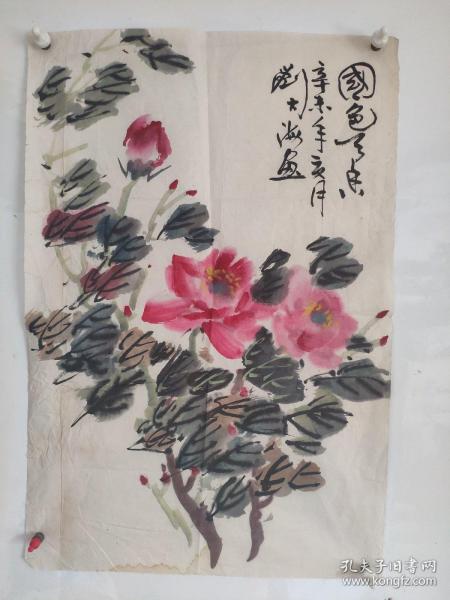 國色天香
辛未年亥月
劉大海画
孔夫子旧书网
www.kongfz.com